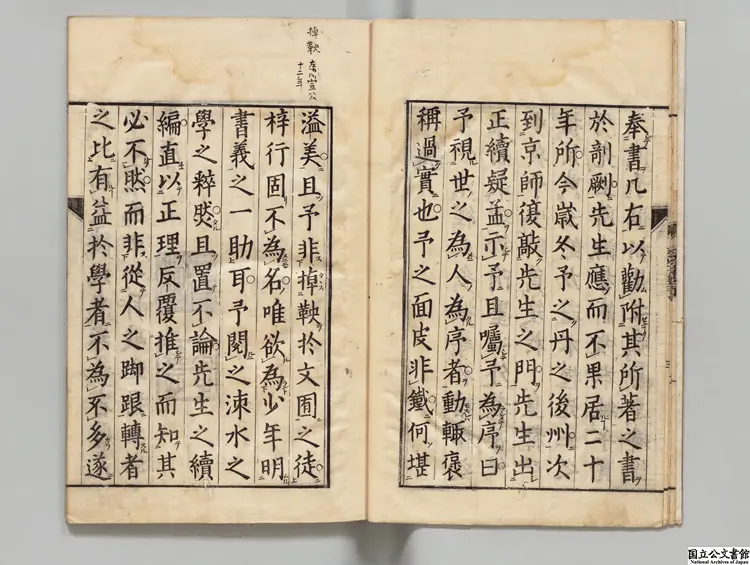 奉書几右以勸附其所著之書
於剞劂先生應而不果居二十
年所今歲冬予之丹之後州次
到京師復敲先生之門先生出
正續疑孟示予且囑予為序曰
予視世之為人為序者動輒褒
稱過實也予之面皮非鐵何堪
掉鞅左氏宣公
十二年
溢美且予非掉鞅於文囿之徒
梓行固不為名唯欲為少年明
書義之一助耳予閱之涑水之
學之粹然且置不論先生之續
編直以正理反覆推之而知其
必不然而非從人之脚跟轉者
之比有益於學者不為不多遂
国立公文書館
National Archives of Japan